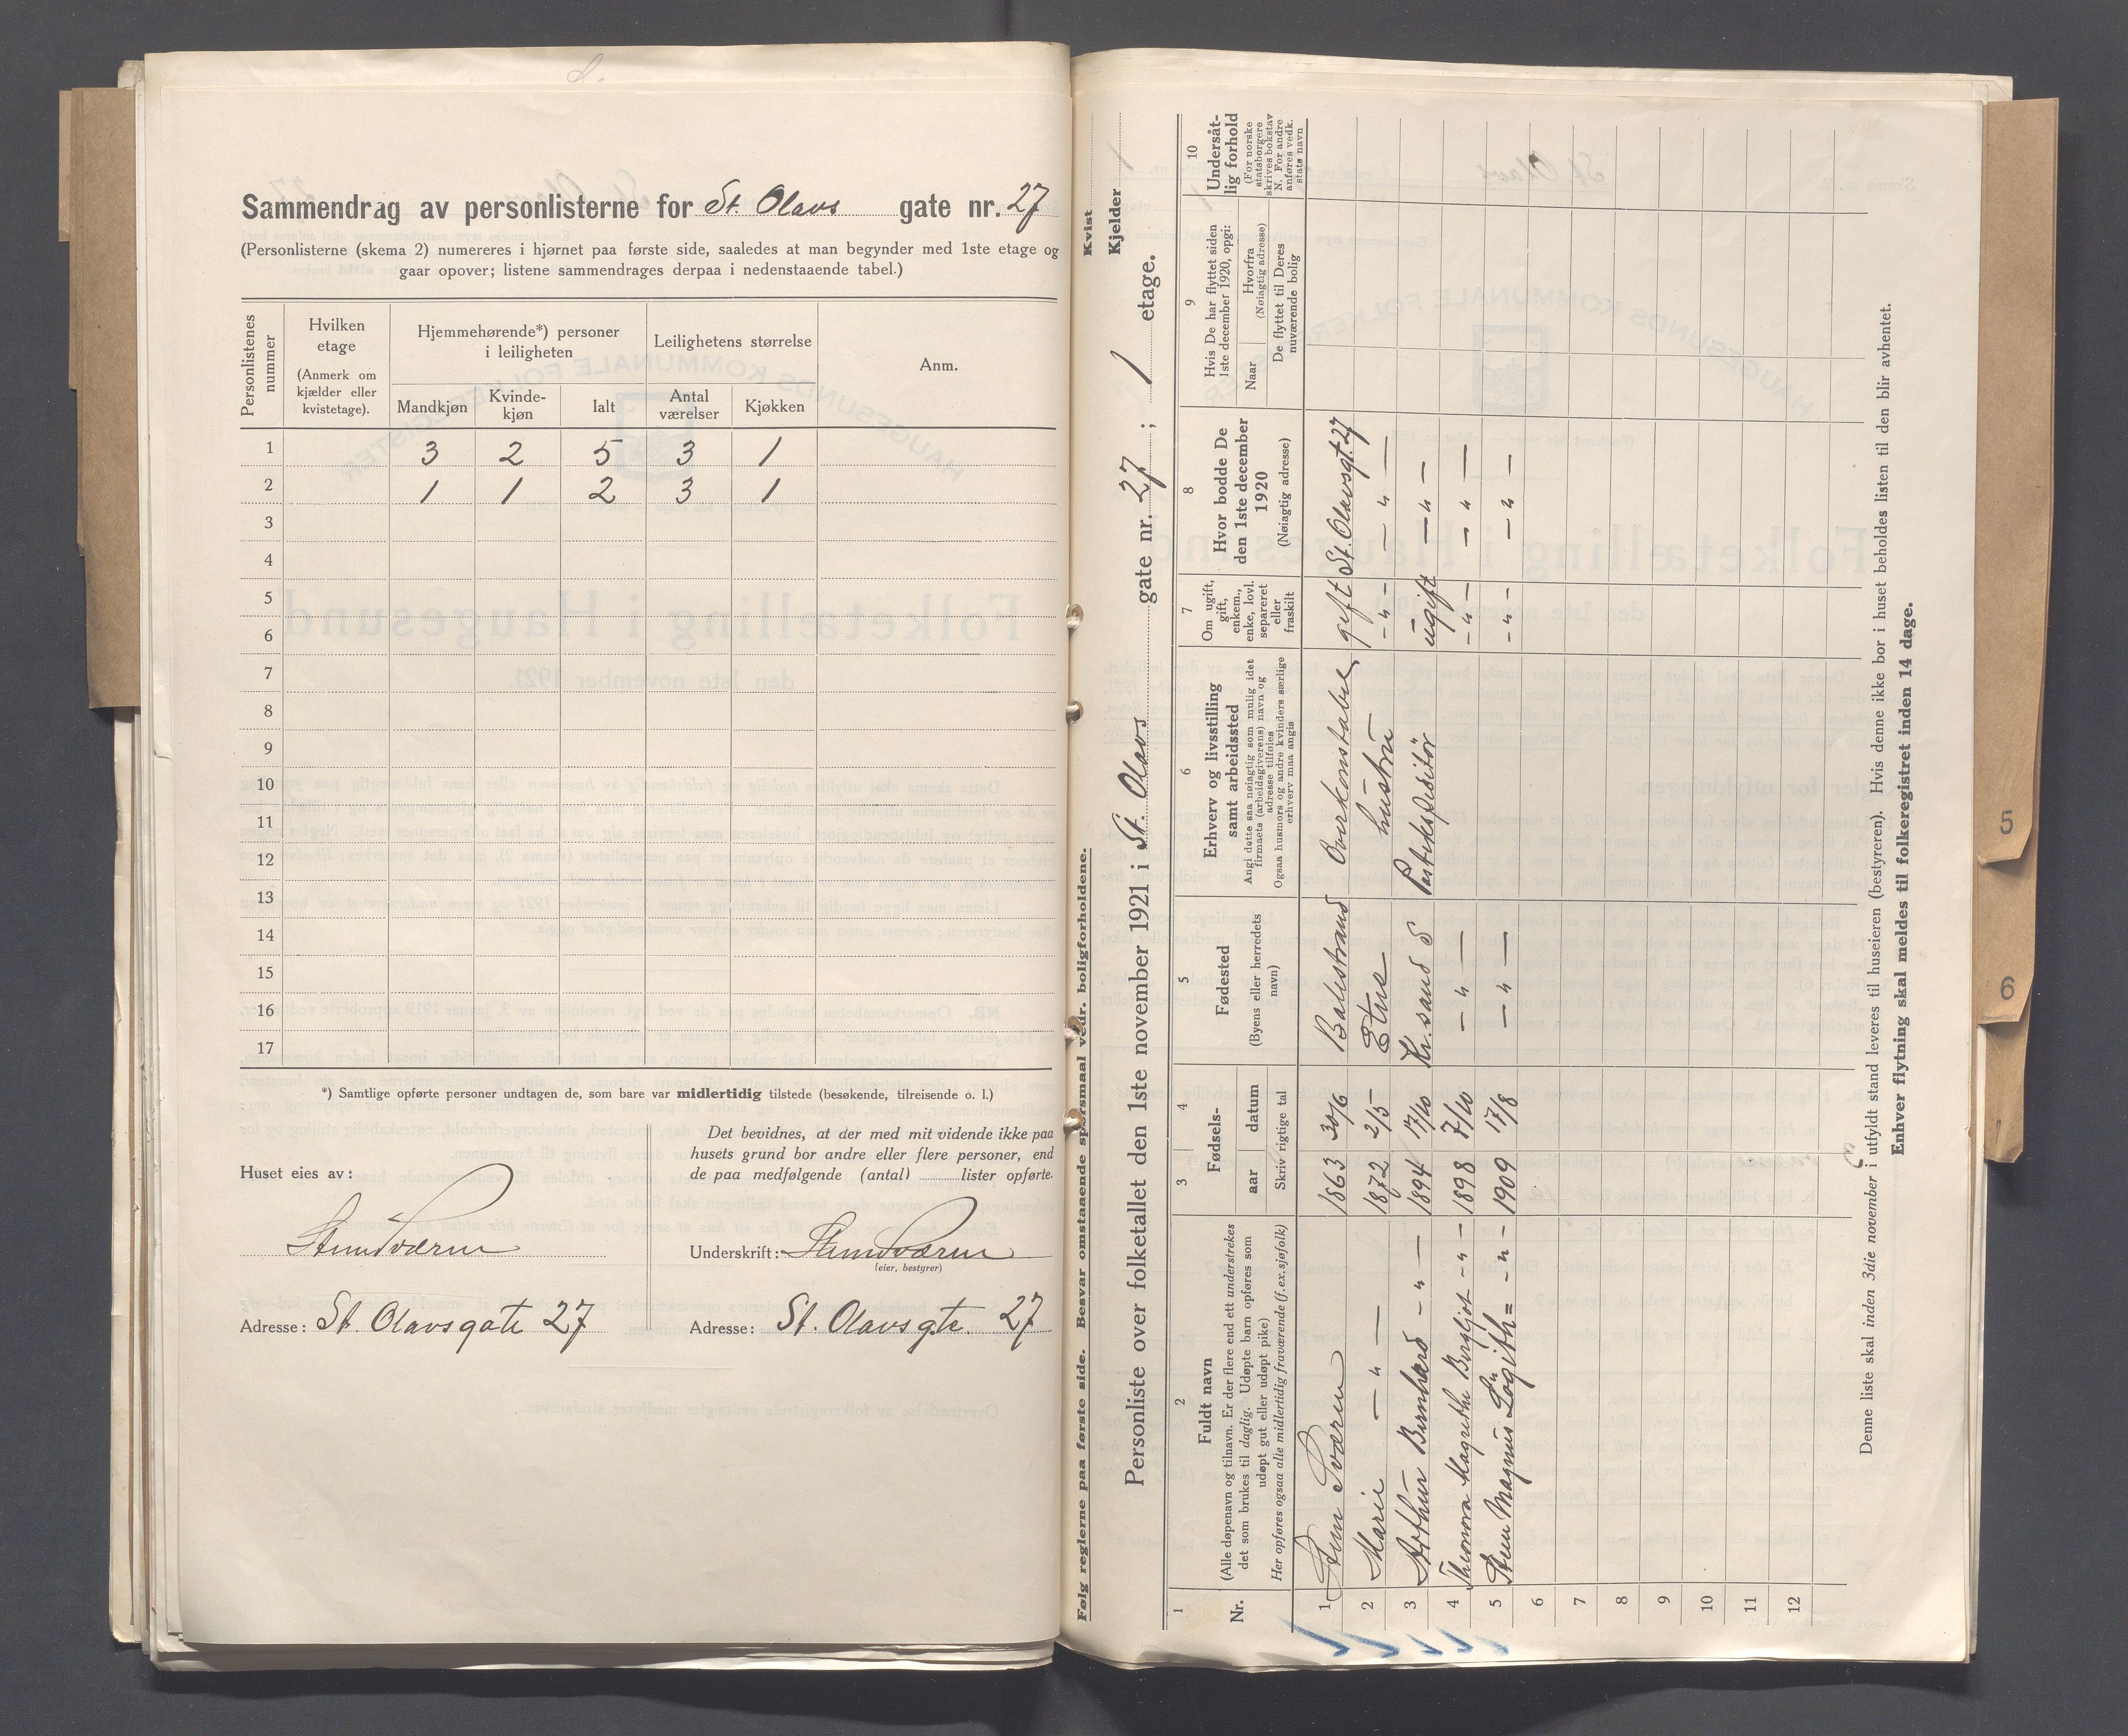 Sammendrag av personlisterne for St. Olavs gate nr. 27
(Personlisterne (skema 2) numereres i hjørnet paa første side, saaledes at man begynder med 1ste etage og
gaar opover; listene sammendrages derpaa i nedenstaaende tabel.)
Personlistenes nummer
Hvilken etage (Anmerk om kjælder eller kvistetage).
Hjemmehørende*) personer i leiligheten
Leilighetens størrelse
Anm.
Mandkjøn Kvinde-kjøn Ialt Antal værelser Kjøkken
1 3 2 5 3 1
2 1 1 2 3 1
3
4
5
6
7
8
9
10
11
12
13
14
15
16
17
*) Samtlige opførte personer undtagen de, som bare var midlertidig tilstede (besøkende, tilreisende o. l.)
Huset eies av:
Adresse: St. Olavsgate 27
Det bevidnes, at der med mit vidende ikke paa
husets grund bor andre eller flere personer, end
de paa medfølgende (antal) lister opførte.
Underskrift:
(eier, bestyrer)
Adresse: St. Olavs gte. 27
Følg reglerne paa første side. Besvar omstaaende spørsmaal vedr. boligforholdene.
Kvist
Kjelder
Personliste over folketallet den 1ste november 1921 i St. Olavs gate nr. 27 ; 1 etage.
1 2 3 4 5 6 7 8 9 10
Nr.
Fuldt navn
(Alle døpenavn og tilnavn. Er der flere end ett understrekes
det som brukes til daglig. Udøpte barn opføres som
udøpt gut eller udøpt pike)
Her opføres ogsaa alle midlertidig fraværende (f. ex. sjøfolk)
Fødsels-
aar datum
Skriv rigtige tal
Fødested
(Byens eller herredets
navn)
Erhverv og livsstilling
samt arbeidssted
Angi dette saa nøiagtig som mulig idet
firmaets (arbeidsgiverens) navn og
adresse tilføies
Ogsaa husmors og andre kvinders særlige
erhverv maa angis
Om ugift,
gift,
enkem.,
enke, lovl.
separeret
eller
fraskilt
Hvor bodde De
den 1ste december
1920
(Nøiagtig adresse)
Hvis De har flyttet siden
1ste december 1920, opgi:
Naar
Hvorfra
(Nøiagtig adresse)
De flyttet til Deres
nuværende bolig
Undersåt-
lig forhold
(For norske
statsborgere
skrives bokstav
N. For andre
anføres vedk.
stats navn
1 Sten Sværen 1863 30/6 Balestrand Overkonstabel gift St. Olavsgt. 27
2 Marie — " — 1872 2/5 Etne hustru - " - — " —
3 Arthur Bernhard - " - 1894 17/10 Kr.sand S Postekspeditør ugift — " —
4 Thomora Magrethe Bergljot - " - 1898 7/10 — " — - " - — " —
5 Sten Magnus - " - 1909 17/8 — " — - " - — " —
6
7
8
9
10
11
12
Denne liste skal inden 3die november i utfyldt stand leveres til huseieren (bestyreren). Hvis denne ikke bor i huset beholdes listen til den blir avhentet.
Enhver flytning skal meldes til folkeregistret inden 14 dage.
5
6